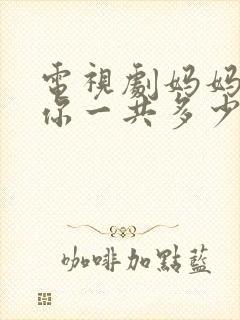 電視劇媽媽
你一共多少
咖啡加點藍